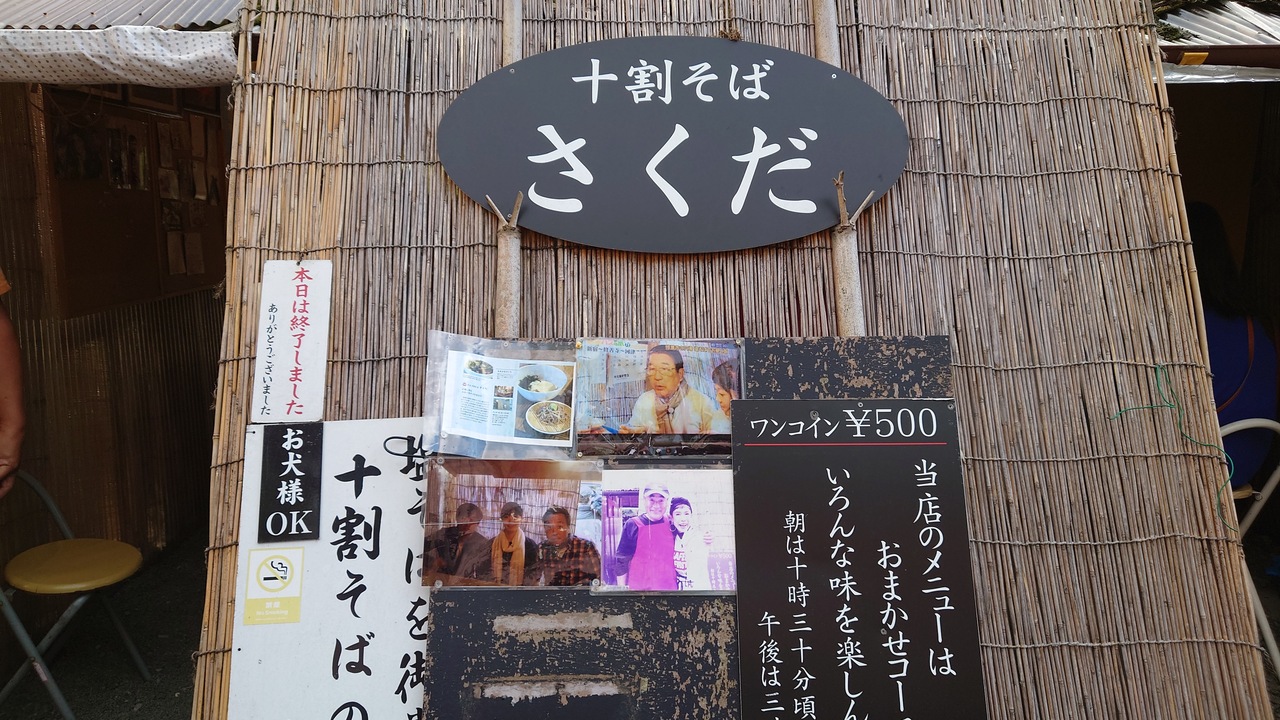 十割そば
さくだ
本日は終了しました
ありがとうございました
お犬様
OK
を
十割そばの
ワンコイン ¥500
当店のメニューは
おまかせコー
いろんな味を楽しん
朝は十時三十分頃
午後は三